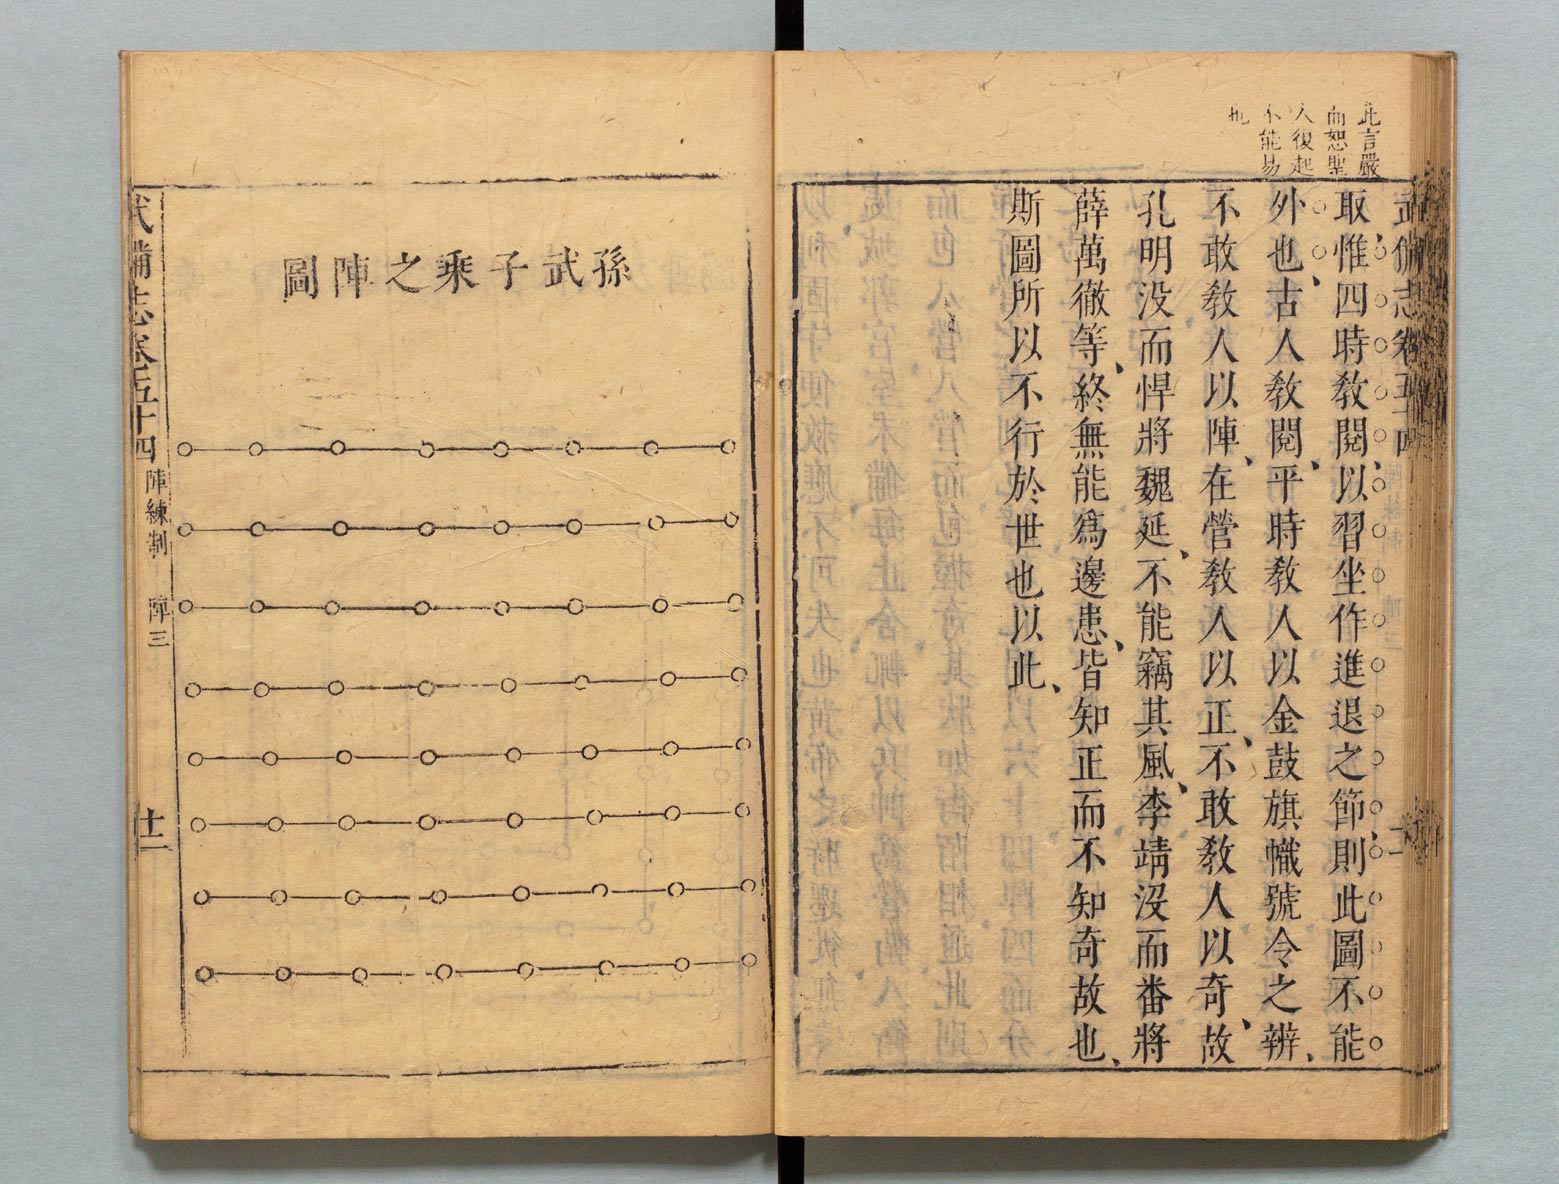 此言嚴
而恕聖
人復起
不能易
也
武備志卷五十四
取惟四時教閱以習坐作進退之節則此圖不能
外也古人教閱平時教人以金鼓旗幟號令之辨
不敢教人以陣在營教人以正不敢教人以奇故
孔明没而悍將魏延不能竊其風李靖没而番將
薛萬徹等終無能爲邊患皆知正而不知奇故也
斯圖所以不行於世也以此
孫武子乘之陣圖
武備志卷五十四 陣練制 陣三 十二